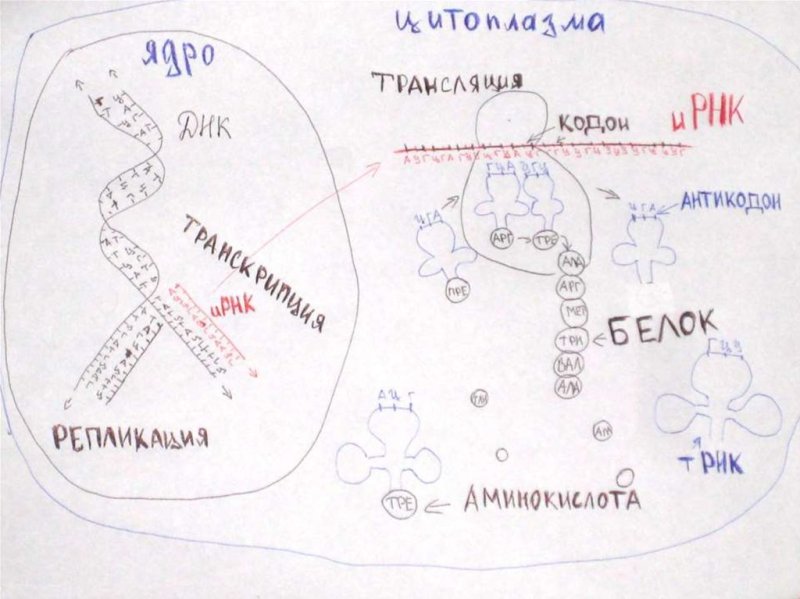 цитоплазма
ядро
ТРАНСЛЯЦИЯ
ДНК
КОДОН
иРНК
ГЦА УГУ
ЦГА
ЦГА
АНТИКОДОН
ТРАНСКРИПЦИЯ
АРГ
ТРЕ
АЛА
ПРЕ
АРГ
МЕТ
иРНК
ТРИ
БЕЛОК
ВАЛ
АЛА
ГЦУ
АЦГ
РЕПЛИКАЦИЯ
тРНК
ТРЕ
АМИНОКИСЛОТА